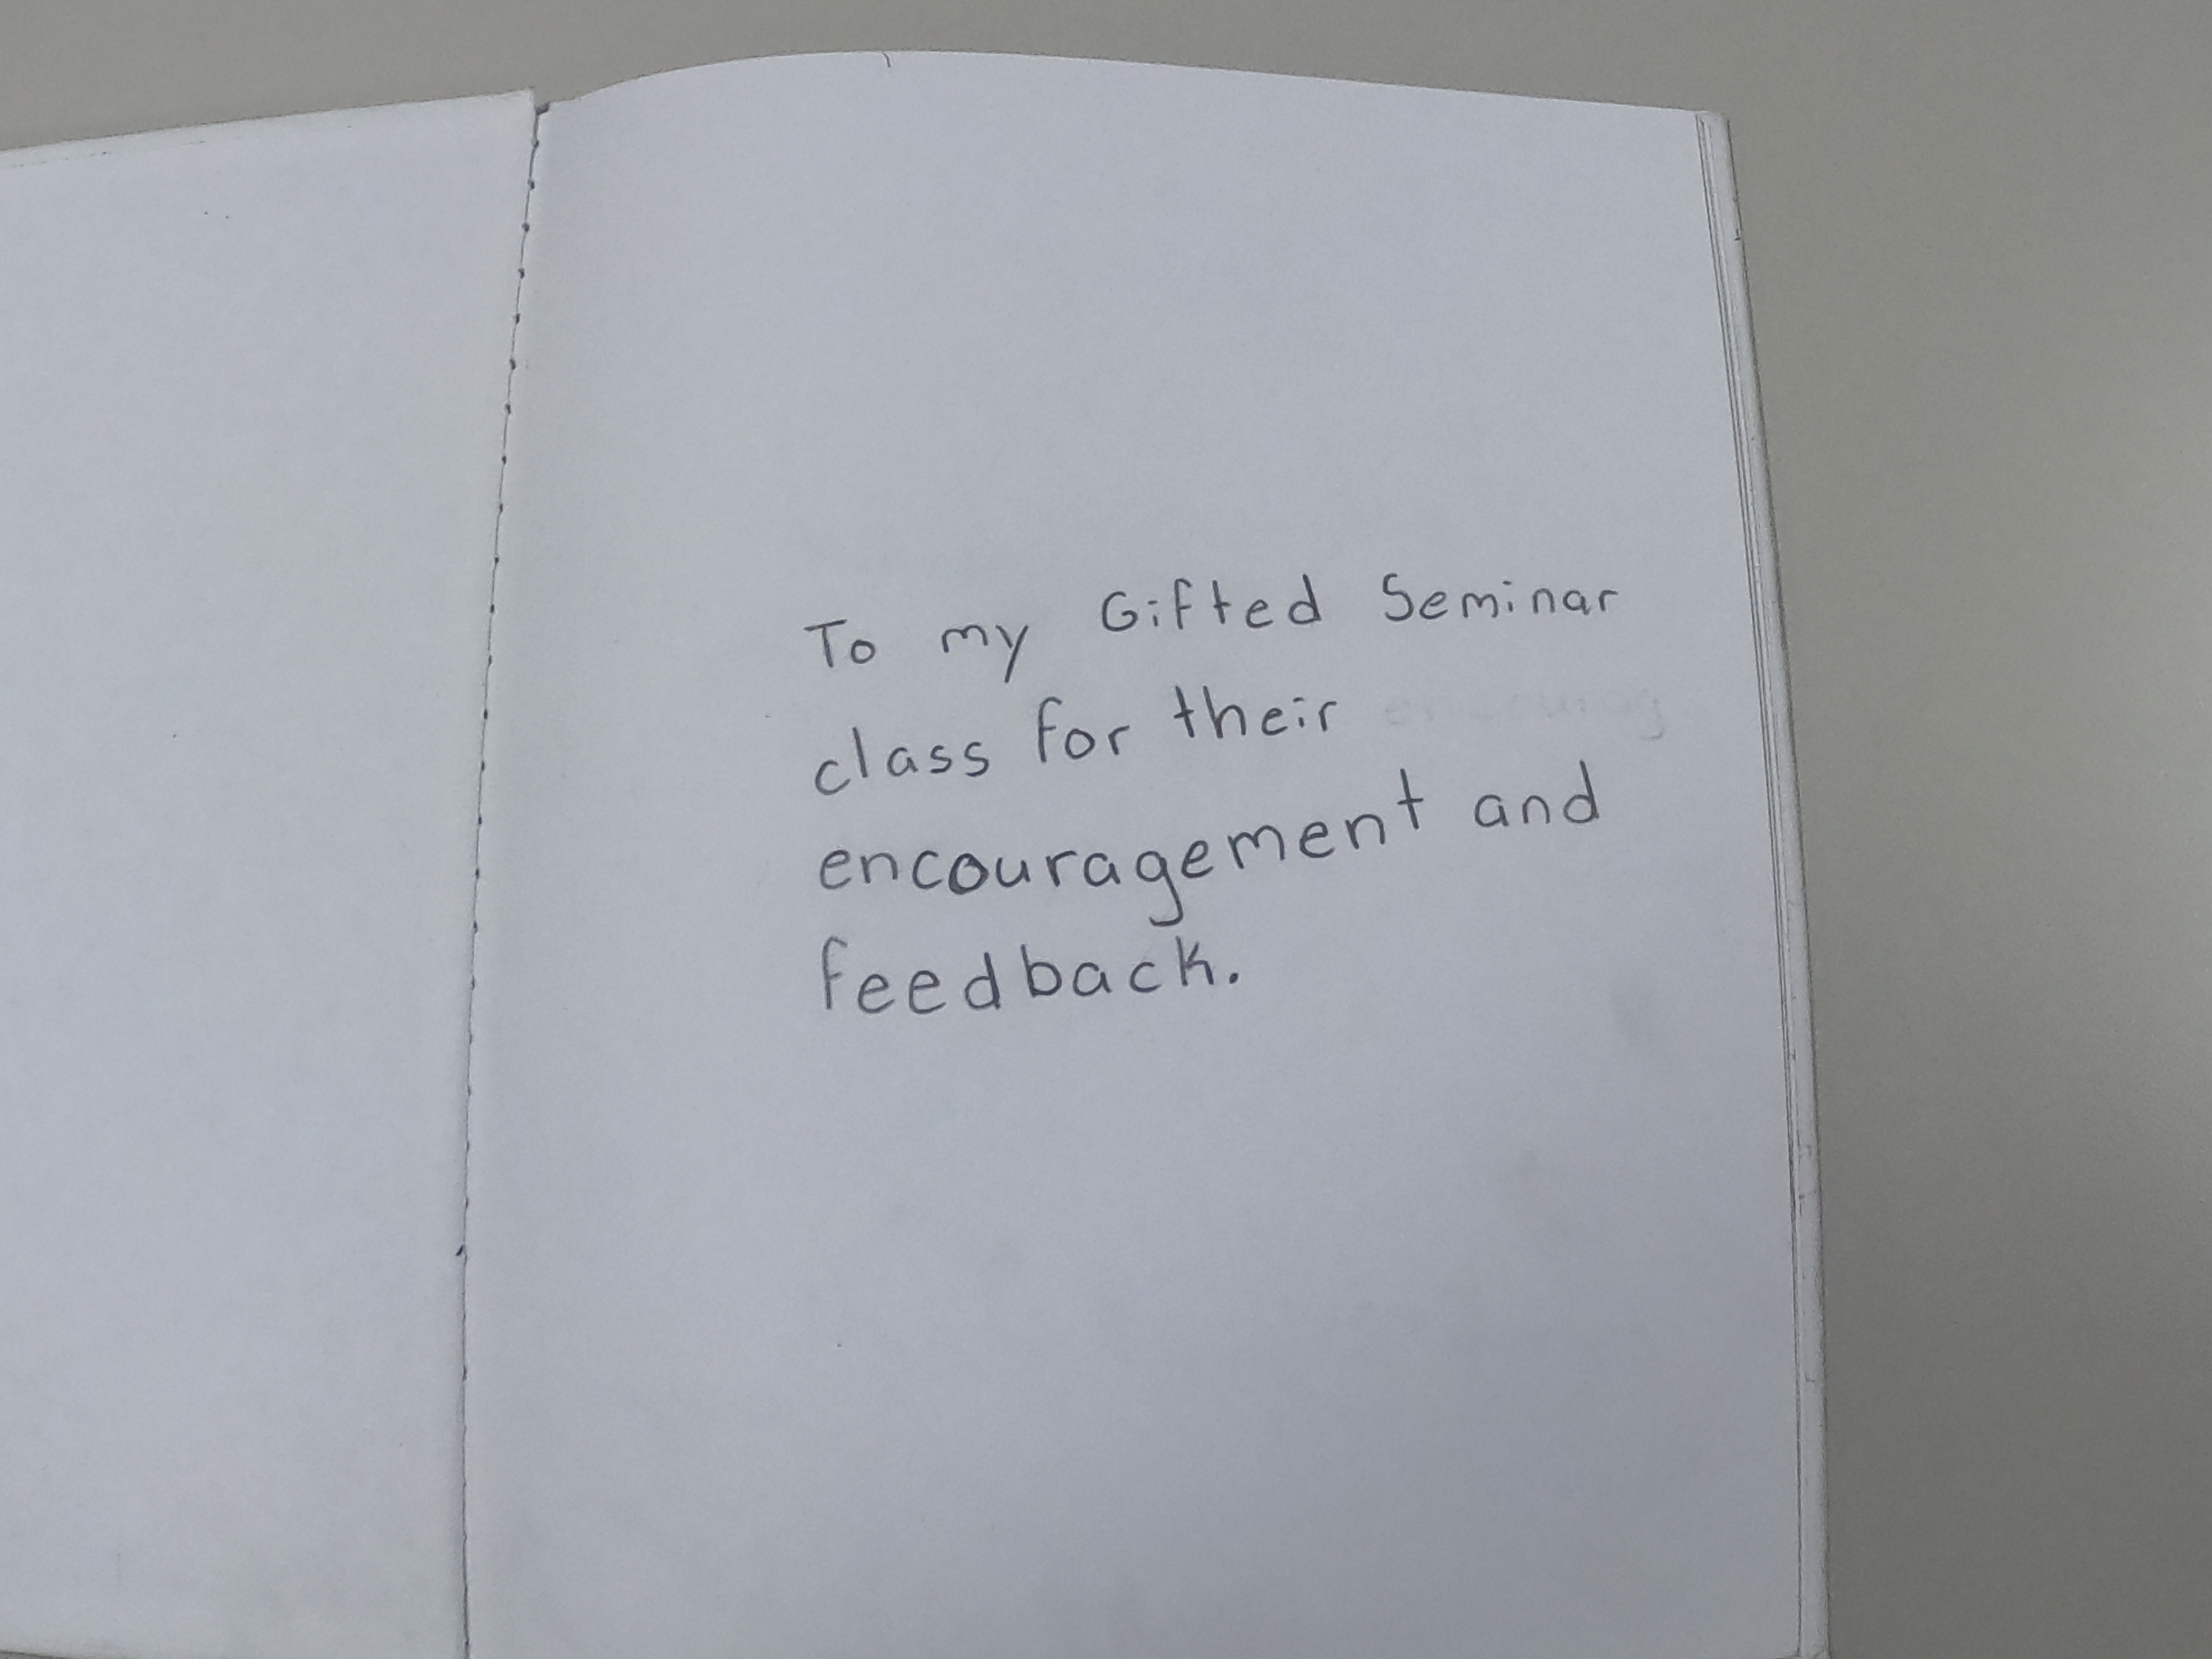 To my Gifted Seminar
class for their
encouragement and
feedback.